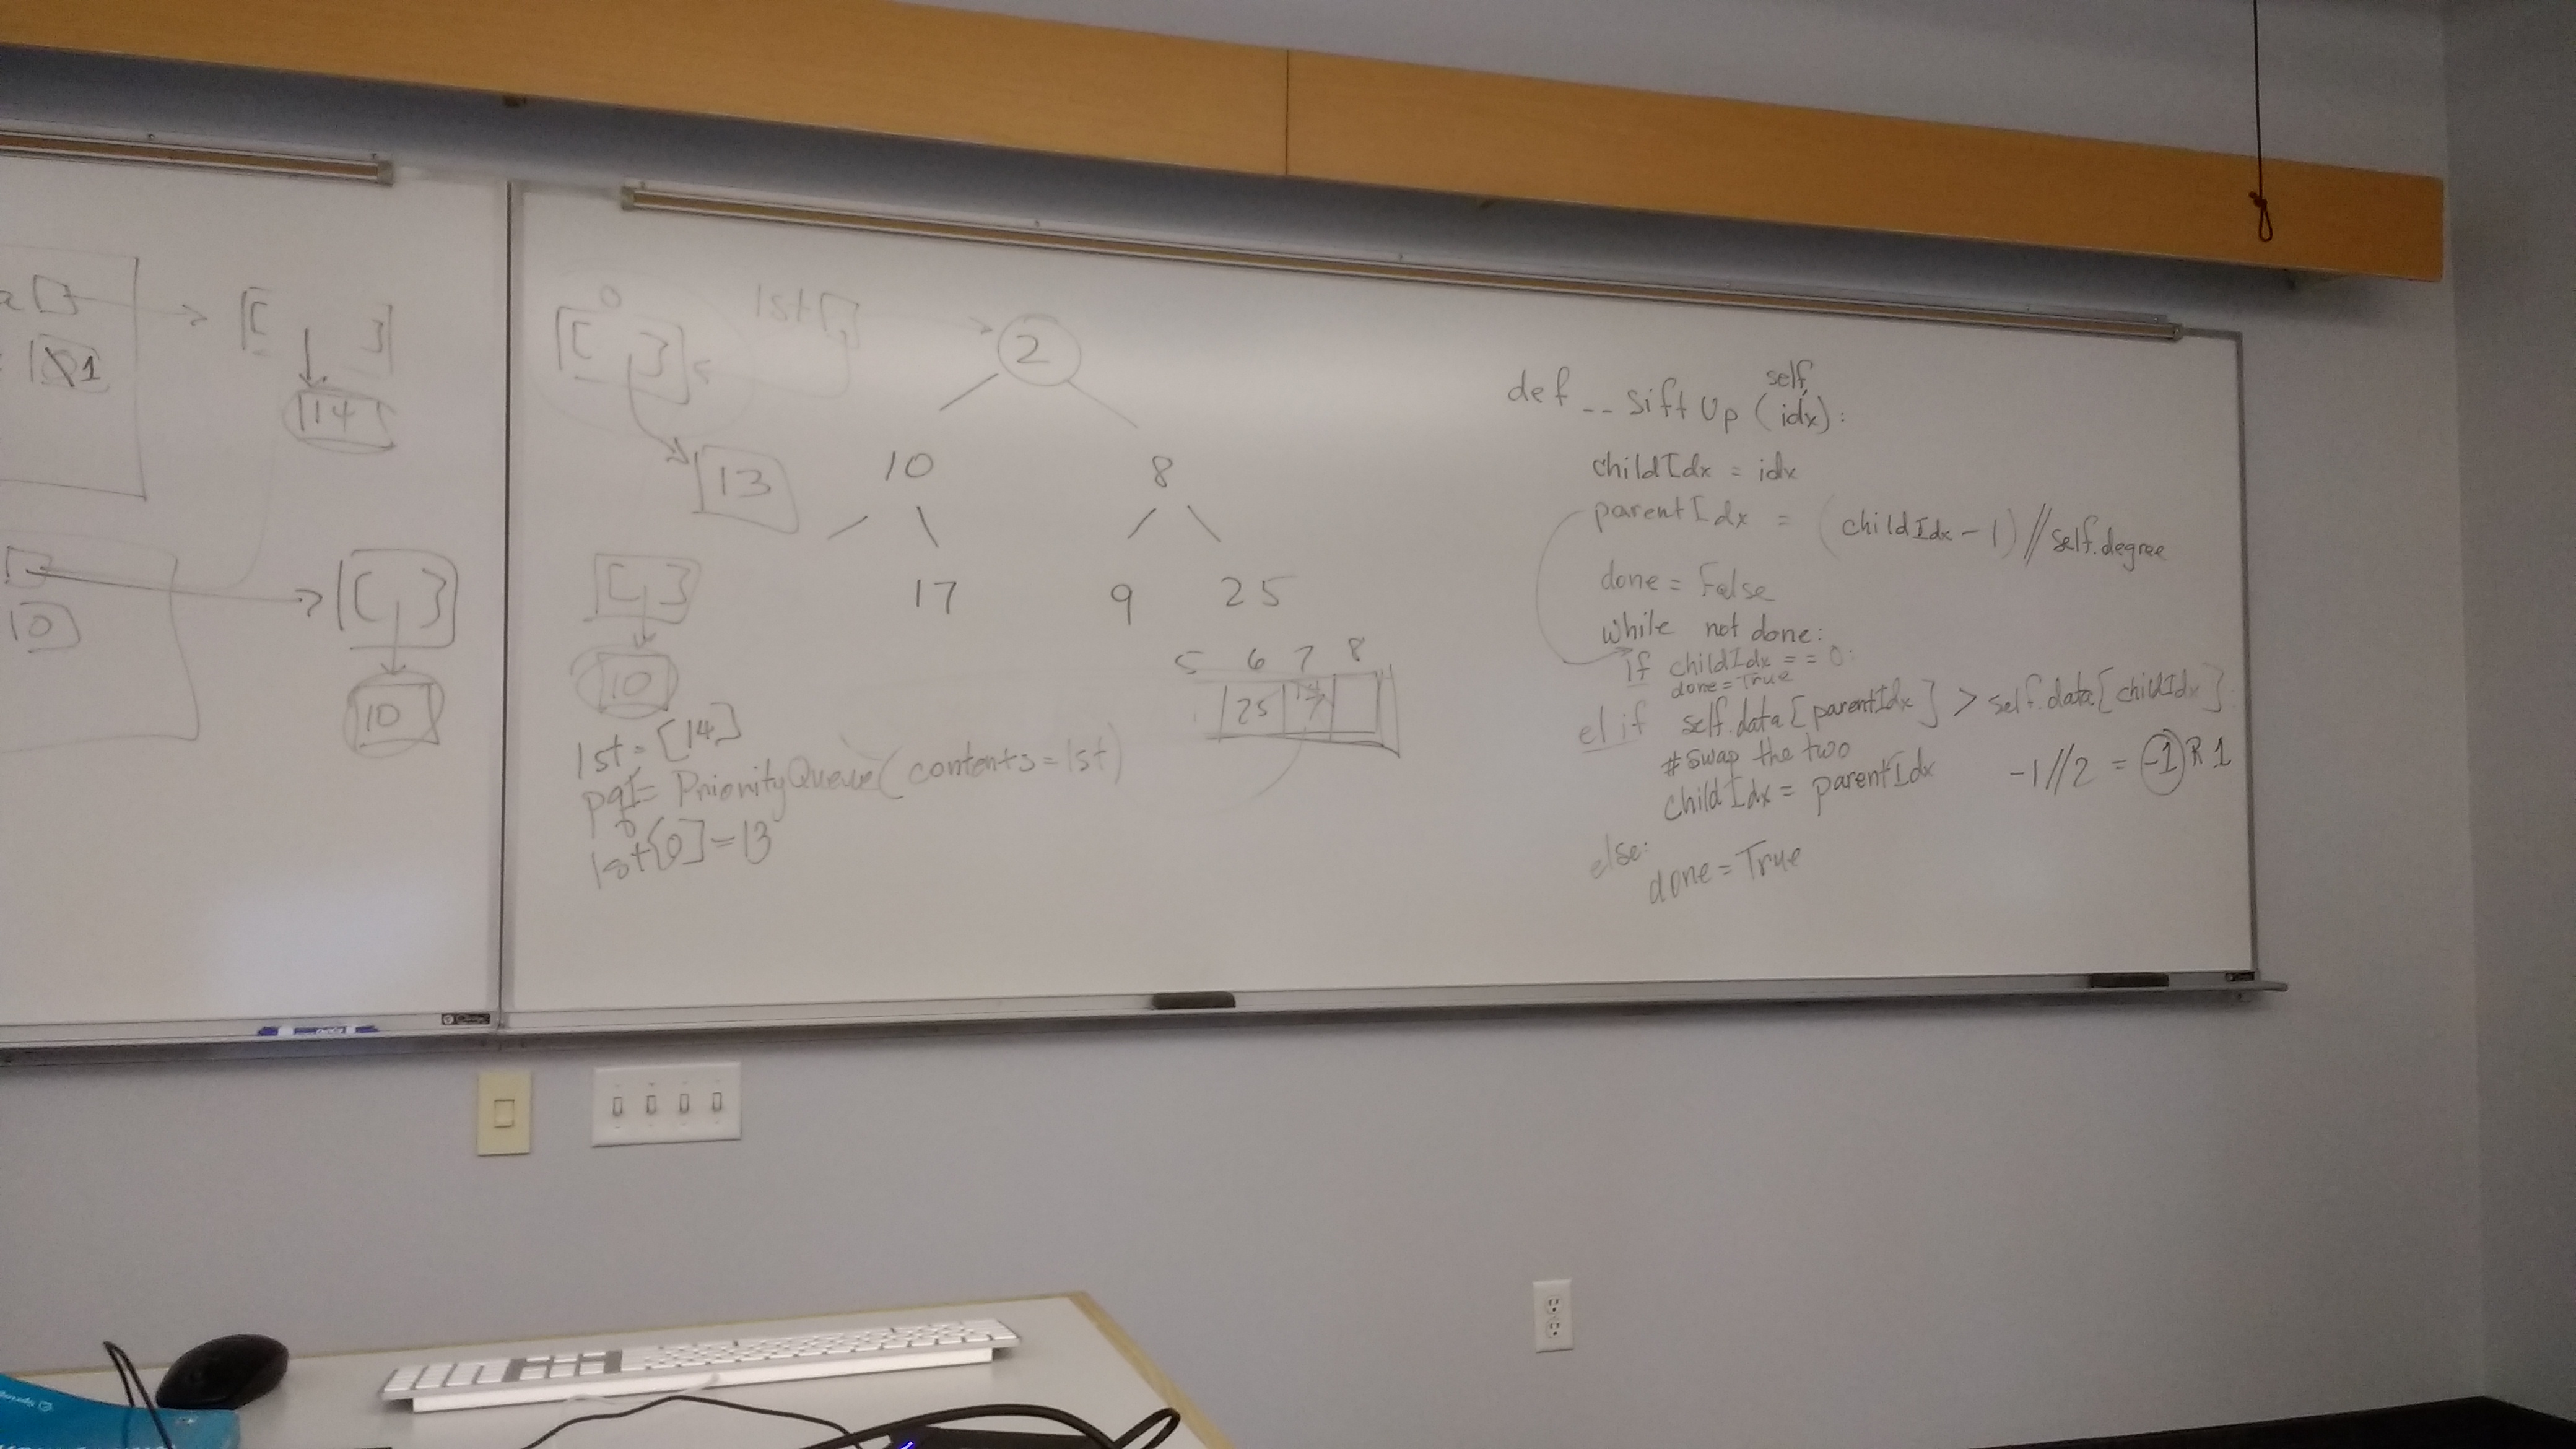 14
1
10
10
0
lst
13
10
2
10 8
17 9 25
5 6 7 8
25
lst = [14]
PriorityQueue(contents=lst)
lst[0]=13
self,
def __siftUp (idx):
childIdx = idx
parentIdx = (childIdx - 1) // self.degree
done = False
while not done:
if childIdx == 0:
done = True
elif self.data[parentIdx] > self.data[childIdx]:
#swap the two
childIdx = parentIdx
-1//2 = -1 R 1
else:
done = True